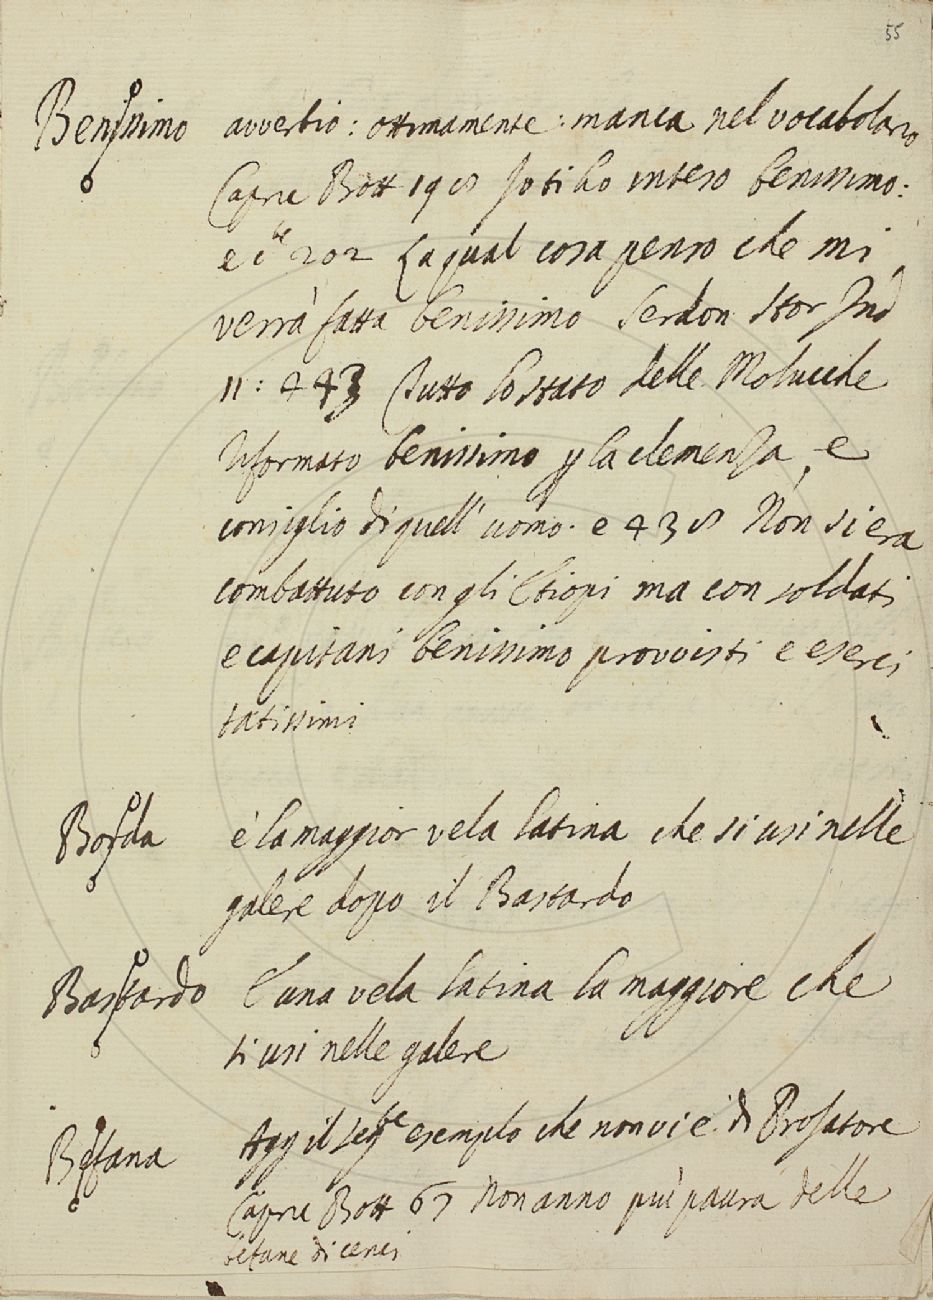 55
Benissimo avverbio: ottimamente: manca nel vocabolario
Capric Bott 198 Io ti ho inteso benissimo:
e 202 La qual cosa penso che mi
verrà fatta benissimo Serdon Stor Ind
11: 443 Tutto lo stato delle Molucche
Informato benissimo p la clemenza, e
consiglio di quell'uomo. e 438 Non si era
combattuto con gli Etiopi ma con soldati
e capitani benissimo provvisti e eserci
tatissimi
Borda è la maggior vela latina che si usi nelle
galere dopo il Bastardo
Bastardo È una vela latina la maggiore che
si usi nelle galere
Befana Agg il seg.te esempio che non vi è di Prosatore
Capric Bott 67 Non anno più paura delle
befane di cenci